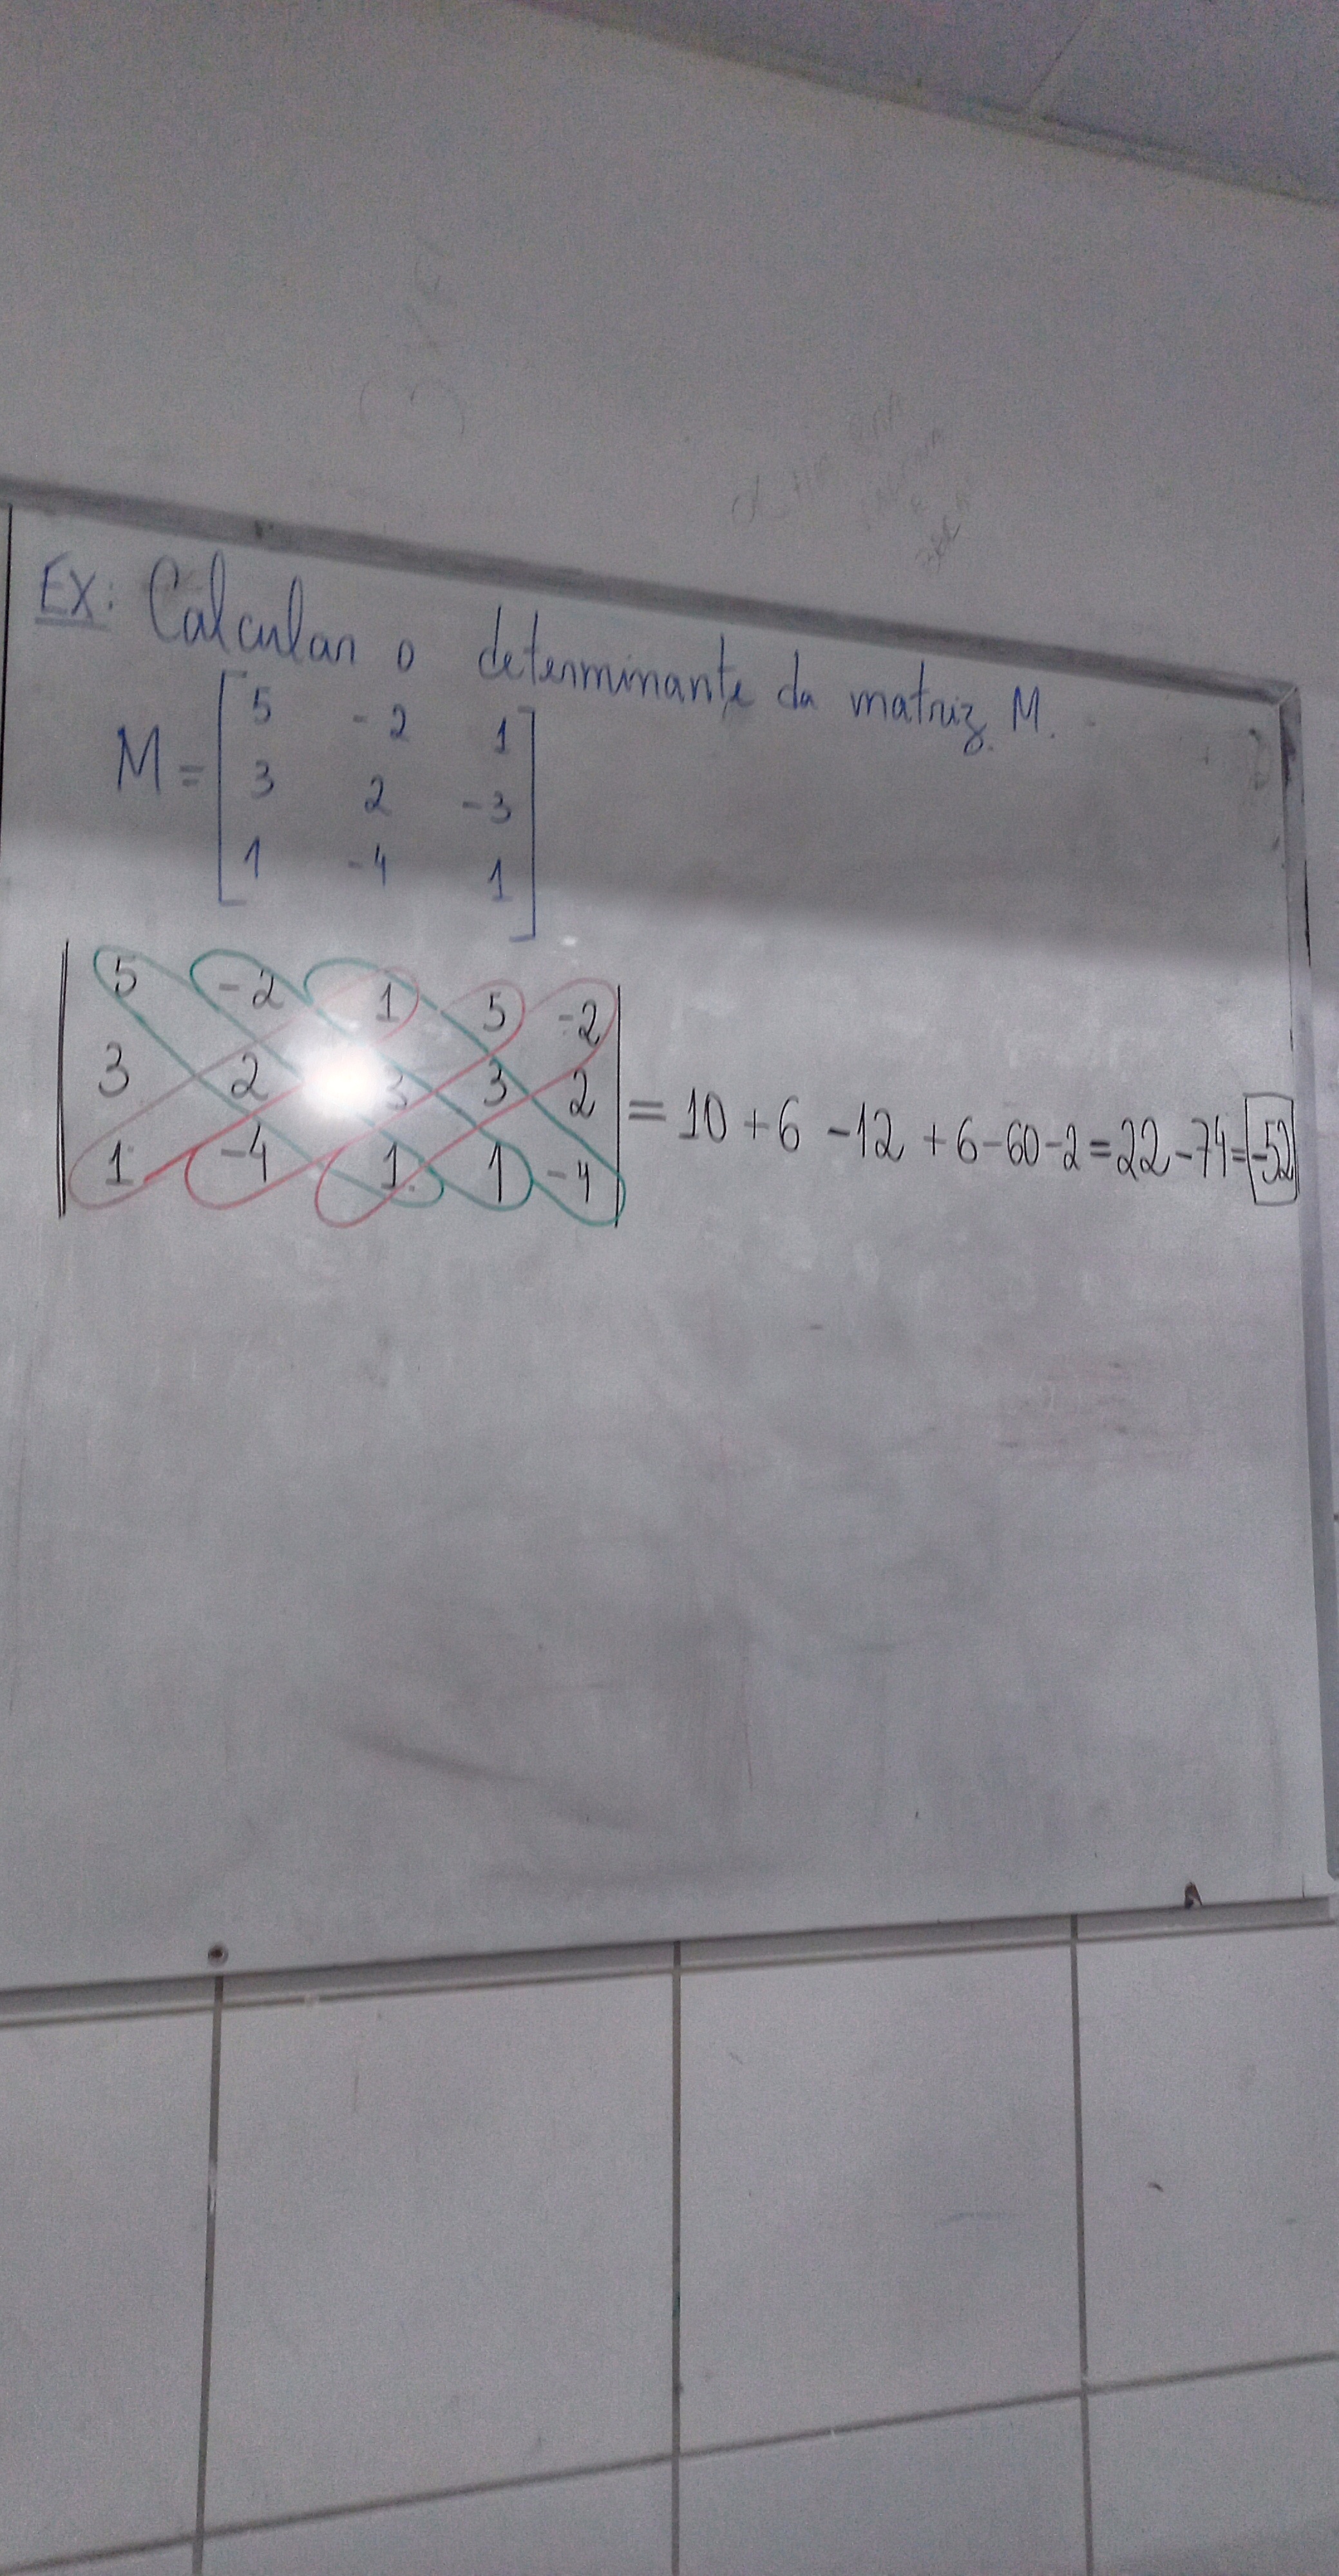 EX: Calcular o determinante da matriz M.
M = [ 5 -2 1
3 2 -3
1 -4 1 ]
| 5 -2 1 5 -2 |
| 3 2 3 3 2 | = 10 + 6 - 12 + 6 - 60 - 2 = 22 - 74 = -52
| 1 -4 1 1 -4 |